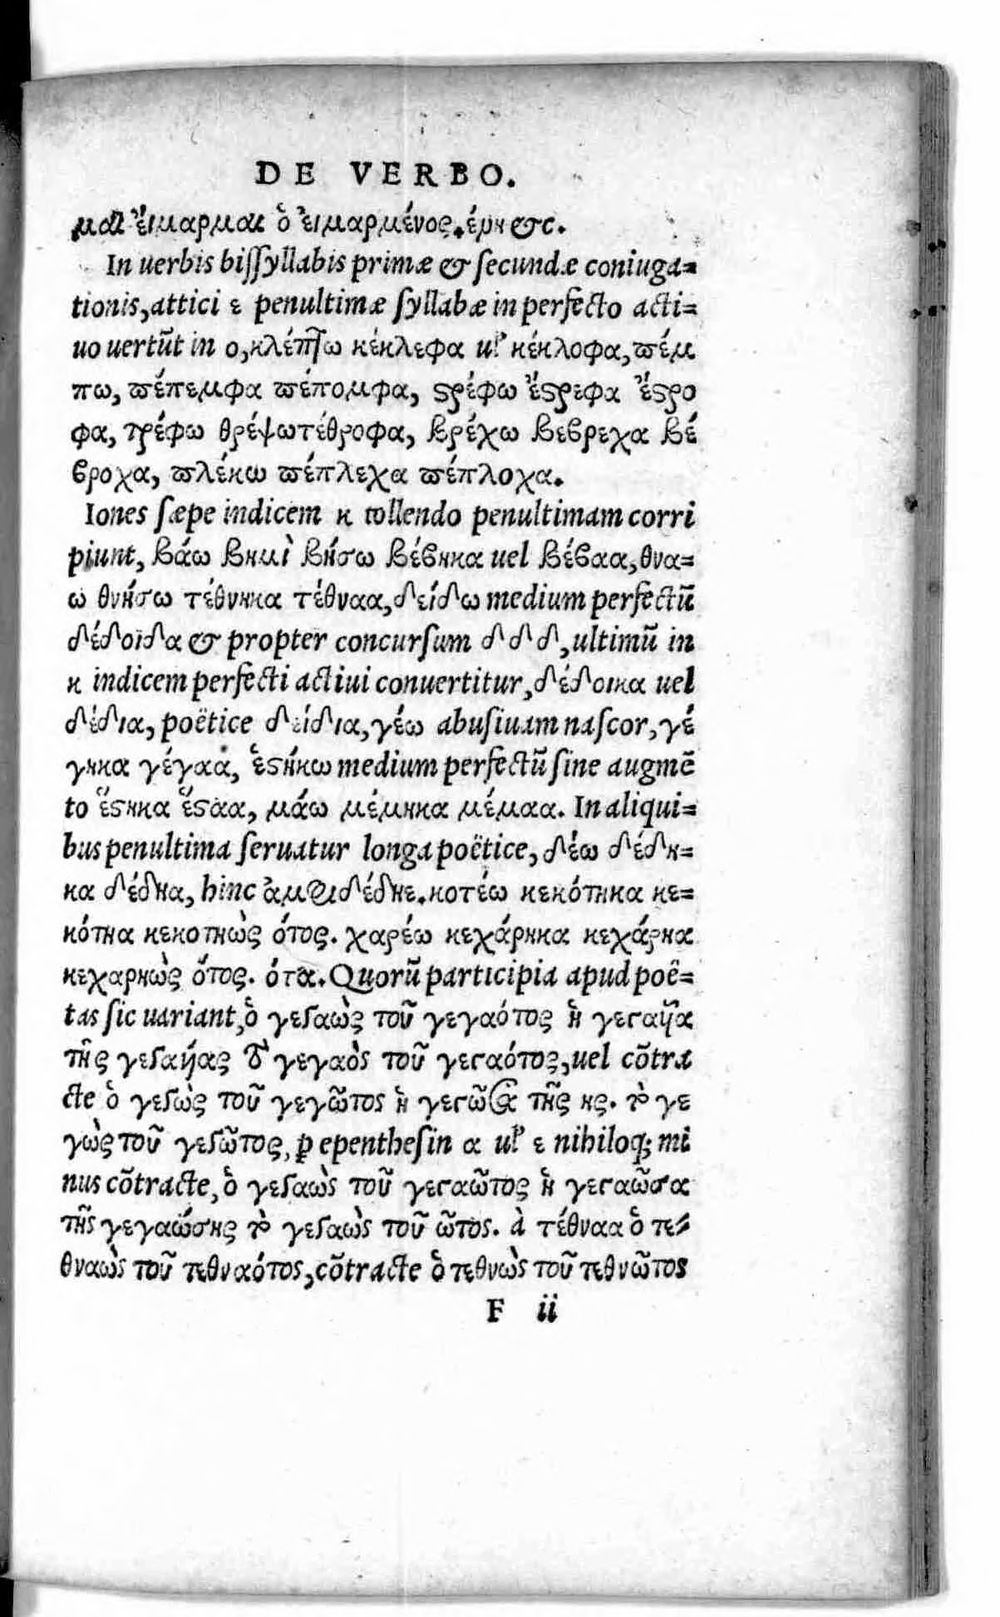 DE VERBO.
μαι εἵμαρμαι ὁ εἱμαρμένος. &c.
In uerbis bissyllabis primæ & secundæ coniuga=
tionis, attici ε penultimæ syllabæ in perfecto acti=
uo uertūt in ο, κλέπτω κέκλεφα ul' κέκλοφα, πέμ
πω, πέπεμφα πέπομφα, ϛρέφω ἔϛρεφα ἔϛρο
φα, τρέφω θρέψω τέθροφα, βρέχω βεβρεχα βέ
βροχα, πλέκω πέπλεχα πέπλοχα.
Iones sæpe indicem κ tollendo penultimam corri
piunt, βάω βημὶ βήσω βέβηκα uel βέβαα, θνα=
ω θνήσω τέθνηκα τέθναα, δείδω medium perfectū
δέδοϊδα & propter concursum δ δ δ, ultimū in
κ indicem perfecti actiui conuertitur, δέδοικα uel
δέδια, poëtice δείδια, γέω abusiuam nascor, γέ
γηκα γέγαα, ἑϛήκω medium perfectū sine augmē
to ἕϛηκα ἕϛαα, μάω μέμηκα μέμαα. In aliqui=
bus penultima seruatur longa poëtice, δέω δέδη=
κα δέδηα, hinc ἀμφιδέδηε. κοτέω κεκότηκα κε=
κότηα κεκοτηὼς ότος. χαρέω κεχάρηκα κεχάρηα
κεχαρηὼς ότος. ότα. Quorū participia apud poë=
tas sic uariant, ὁ γεγαὼς τοῦ γεγαότος ἡ γεγαῦα
τῆς γεγαύας τὸ γεγαὸς τοῦ γεγαότος, uel cōtra
cte ὁ γεγὼς τοῦ γεγῶτος ἡ γεγῶσα τῆς ης. τὸ γε
γὼς τοῦ γεγῶτος, ꝑ epenthesin α ul' ε nihiloq; mi
nus cōtracte, ὁ γεγαὼς τοῦ γεγαῶτος ἡ γεγαῶσα
τῆς γεγαώσης τὸ γεγαὼς τοῦ ῶτος. à τέθναα ὁ τε=
θναὼς τοῦ τεθναότος, cōtracte ὁ τεθνὼς τοῦ τεθνῶτος
F ii